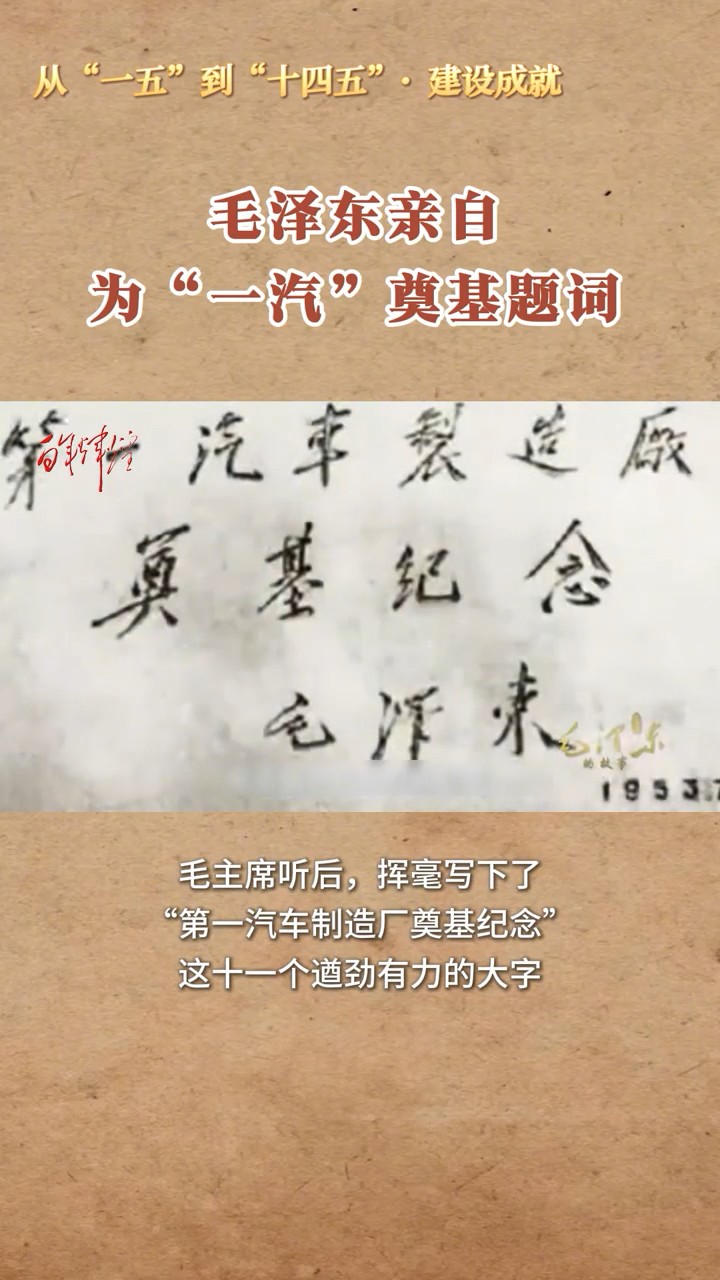 从“一五”到“十四五”·建设成就
毛泽东亲自
为“一汽”奠基题词
第一汽車製造廠
百年辉煌
奠基纪念
毛泽东
毛泽东
的故事
1953.7
毛主席听后，挥毫写下了
“第一汽车制造厂奠基纪念”
这十一个遒劲有力的大字